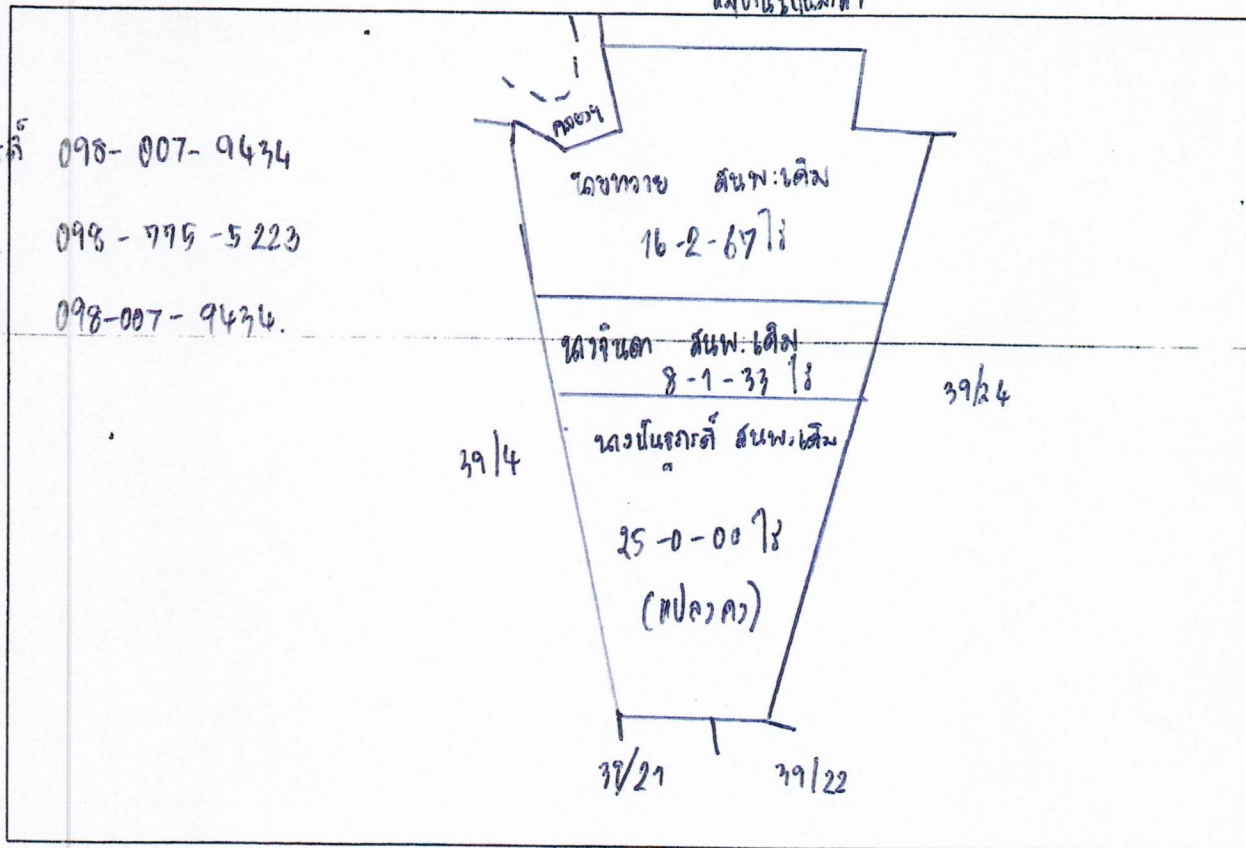 098-007-9434
098-775-5223
098-007-9434.
คลองฯ
นายทวาย สนพะเดิม
16-2-67 ไร่
นางจินดา สนพะเดิม
8-1-33 ไร่
39/24
39/4
สนพะเดิม
25-0-00 ไร่
(แปลงคง)
39/21
39/22